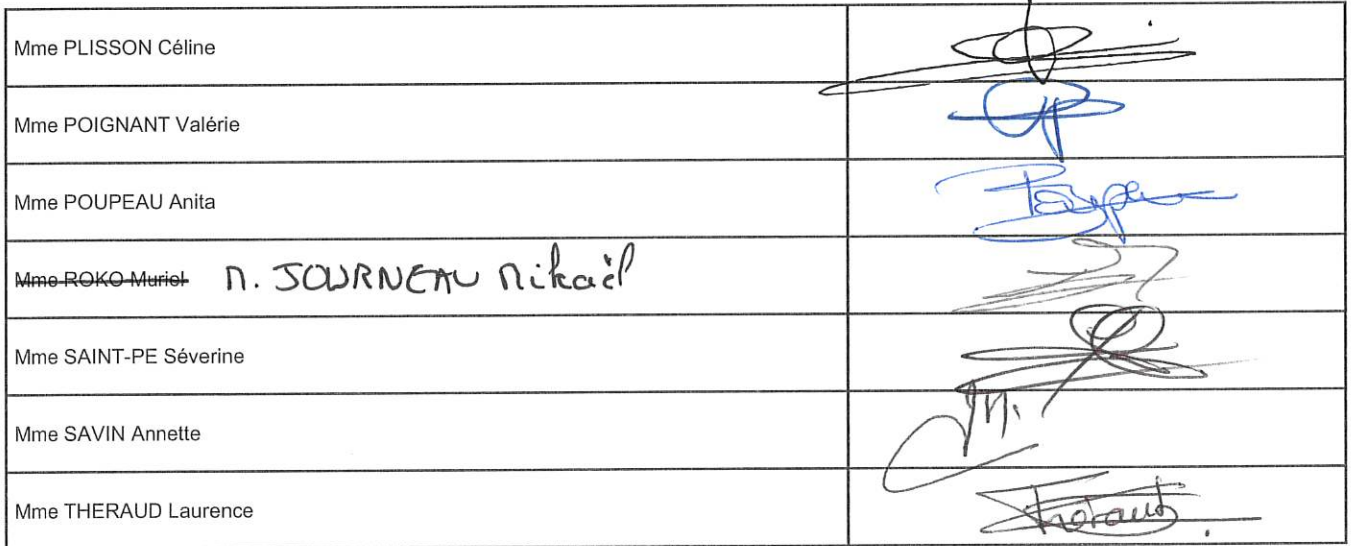 Mme PLISSON Céline
Mme POIGNANT Valérie
Mme POUPEAU Anita
Mme ROKO Muriel M. JOURNEAU Mikaël
Mme SAINT-PE Séverine
Mme SAVIN Annette
Mme THERAUD Laurence Theraud